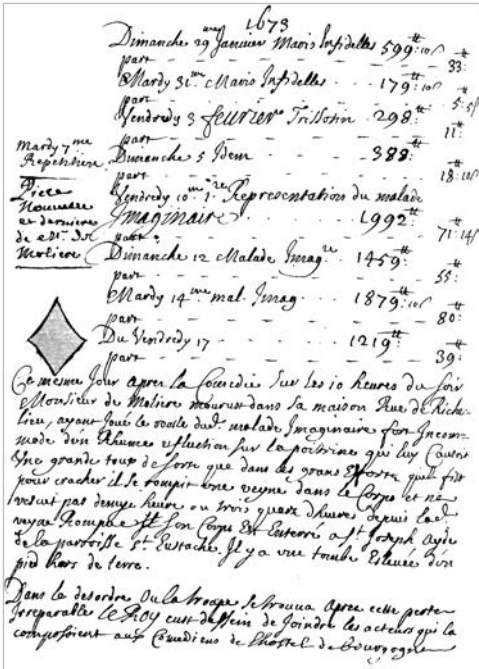 1673
Dimanche 29 Janvier Maris Infidelles 599tt:10s
part - - - - - - 33:tt
Mardy 31me Maris Infidelles - - - 179tt:10s
part - - - - - - 5:5s
Vendredy 3 feurier Trissotin - 298tt
part - - - - - - 11:tt
Mardy 7me
Repetition
Dimanche 5 Idem - - - - 388:tt
part - - - - - - 18:10s
Piece
Nouuelle
et derniere
de Mr. de
Moliere
Vendredy 10me 1re Representation du malade
Imaginaire - - - 1992tt
part. - - - - - - 71:14s
Dimanche 12 Malade Imagre - - 1459:tt
part - - - - - - 55:tt
Mardy 14me mal. Imag - - - 1879tt:10s
part - - - - - - 80:tt
Du Vendredy 17 - - - - 1219:tt
part - - - - - - 39:tt
Ce mesme Jour apres la Comedie Sur les 10 heures du soir
Monsieur de Moliere mourust dans Sa maison Rue de Riche
Lieu, ayant Joué le roosle dud. malade Imaginaire fort Incom
modé dun Rhume et fluction Sur la poitrine qui luy Causoit
Vne grande toux de sorte que dans les grans Efforts quil fist
pour cracher il se rompit une veyne dans le Corps et ne
vescut pas demye heure ou trois quarts dheure depuis lad.
veyne Rompue Son Corps Est Enterré a St Joseph Ayde
de la parroisse St. Eustache. Il y a vne tombe Esleuée d'vn
pied hors de terre.
Dans le desordre Ou la troupe se trouua Apres cette perte
Irreparable le ROY eust dessein de Joindre les acteurs qui la
composoient aux Comediens de L'hostel de bourgogne